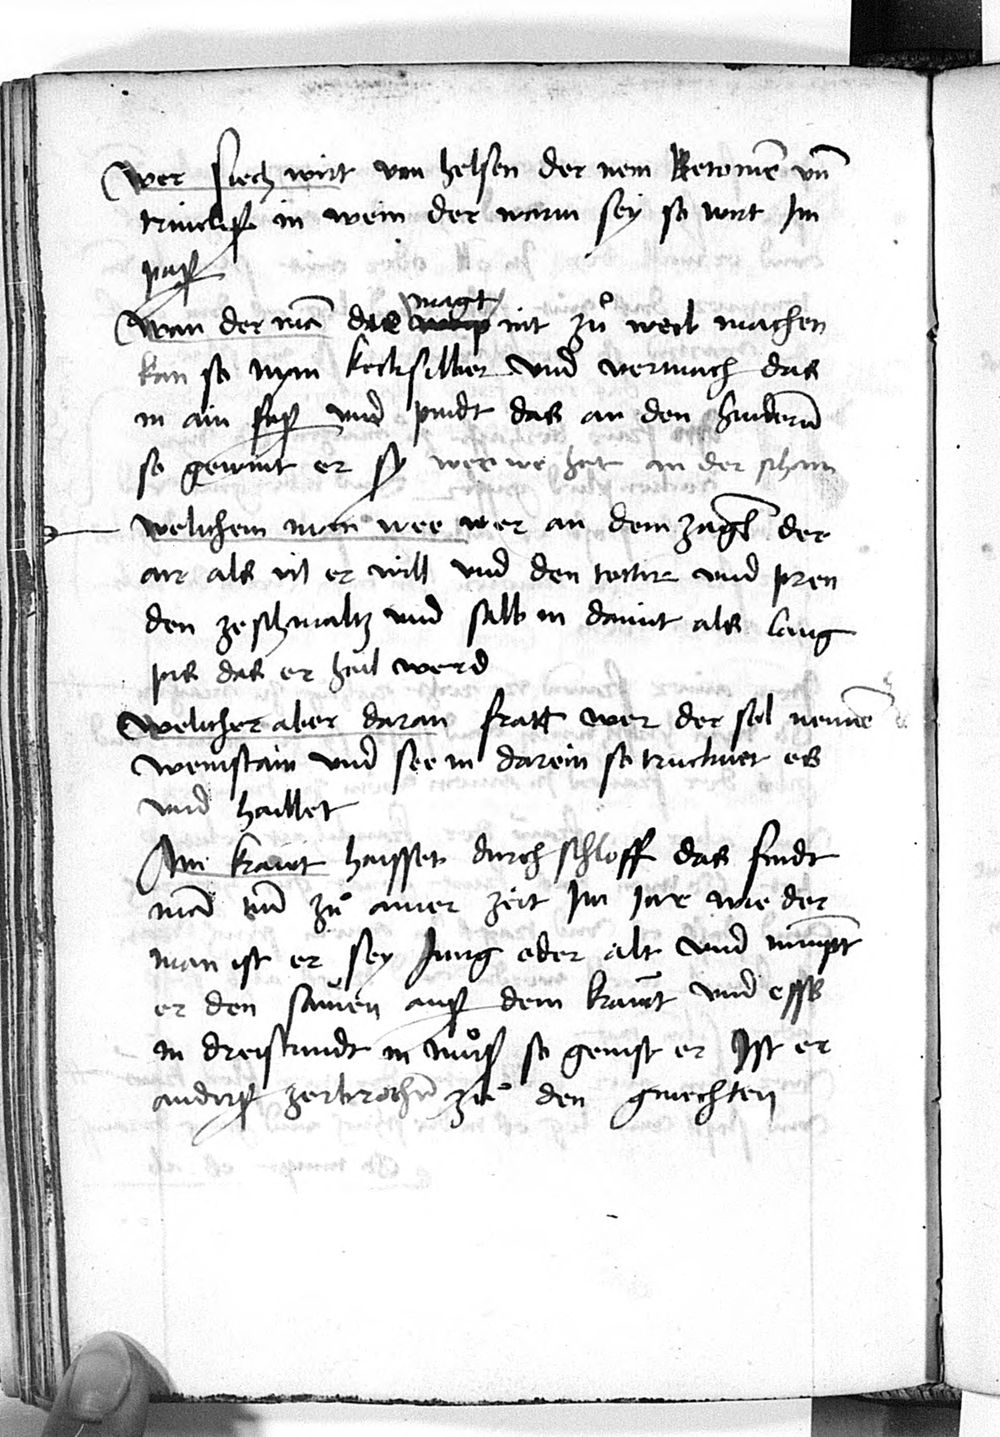 wer siech wirt von helsen der nem Betonie vn̄
trinckß in wein der warm sey so wirt Im
paß
wan der mā das magt nit zů weib machen
kan so nym kecksilber vnd vermach das
in ain vaß vnd pindt das an den hindern̄
so gewint er sy wee we hat an der scham
welichem man wee wer an dem zagl der
air als vil er will vnd den totter vnd pren
den ze schmaltz vnd salb in damit als lang
pis das er hail werd
welicher aber daran fratt wer der sol nemē
weinstain vnd see in darein so trucknet es
vnd hailtet
Ain kraut haisset durch schloff das findt
mā nū zů ainer zeit Im Jar wie der
man ist er sey Jung oder alt vnd nimpt
er den samen auß dem kraut vnd esss
in dreistundt in můß so genist er Ist er
anderß zerbrochē zů den gmechten